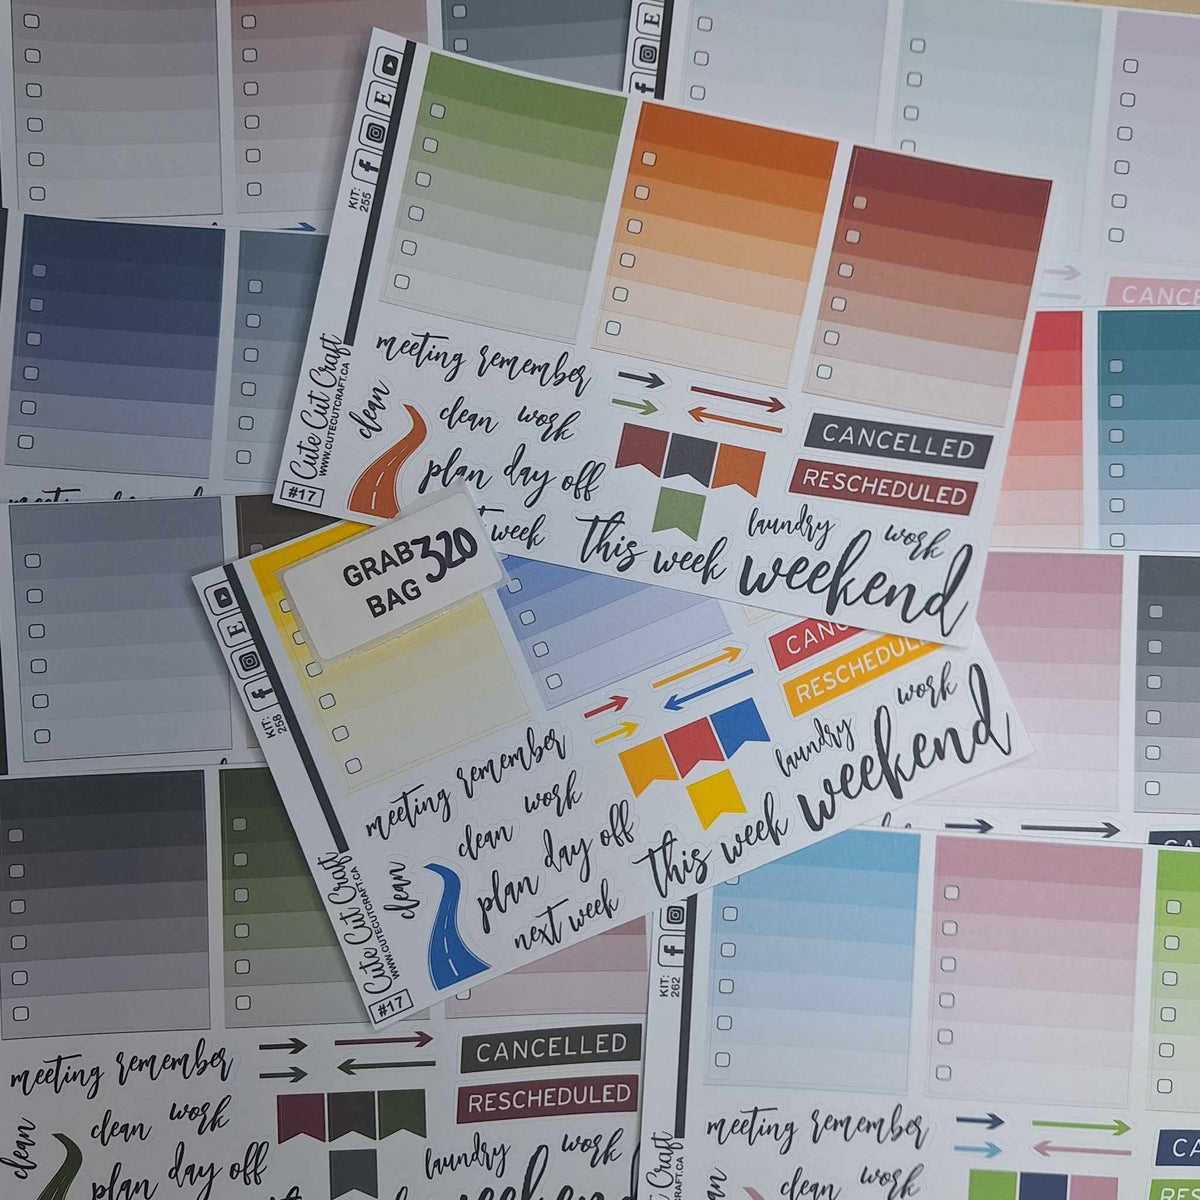 KIT:
255
Cute Cut Craft
WWW.CUTECUTCRAFT.CA
#17
meeting remember
clean
clean work
plan day off
week
This week
laundry
work
weekend
CANCELLED
RESCHEDULED
GRAB 320
BAG
KIT:
258
Cute Cut Craft
WWW.CUTECUTCRAFT.CA
#17
meeting remember
clean
clean work
plan day off
next week
This week
laundry
work
weekend
CANC
RESCHEDUL
CANCE
meeting remember
clean
clean work
plan day off
CANCELLED
RESCHEDULED
laundry
work
KIT:
262
Cute Cut Craft
CUTECUTCRAFT.CA
meeting remember
clean work
CA
RES